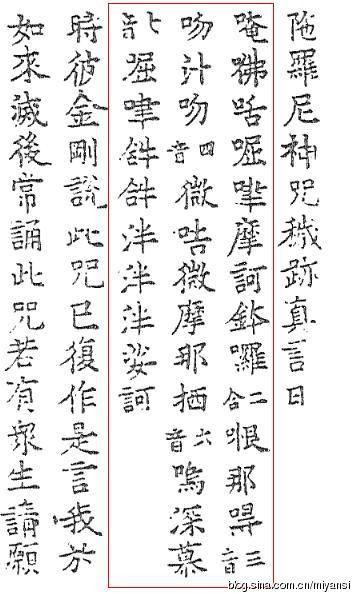 陁羅尼神咒穢跡真言曰
唵𠵱咶啒㖶摩訶鉢囉二合恨那㝵三音
吻汁吻四音微咭微摩那栖六音嗚深慕
啒㖶𤙖𤙖泮泮泮娑訶
時彼金剛說此咒已復作是言我於
如來滅後常誦此咒若有眾生請願
blog.sina.com.cn/miyansi